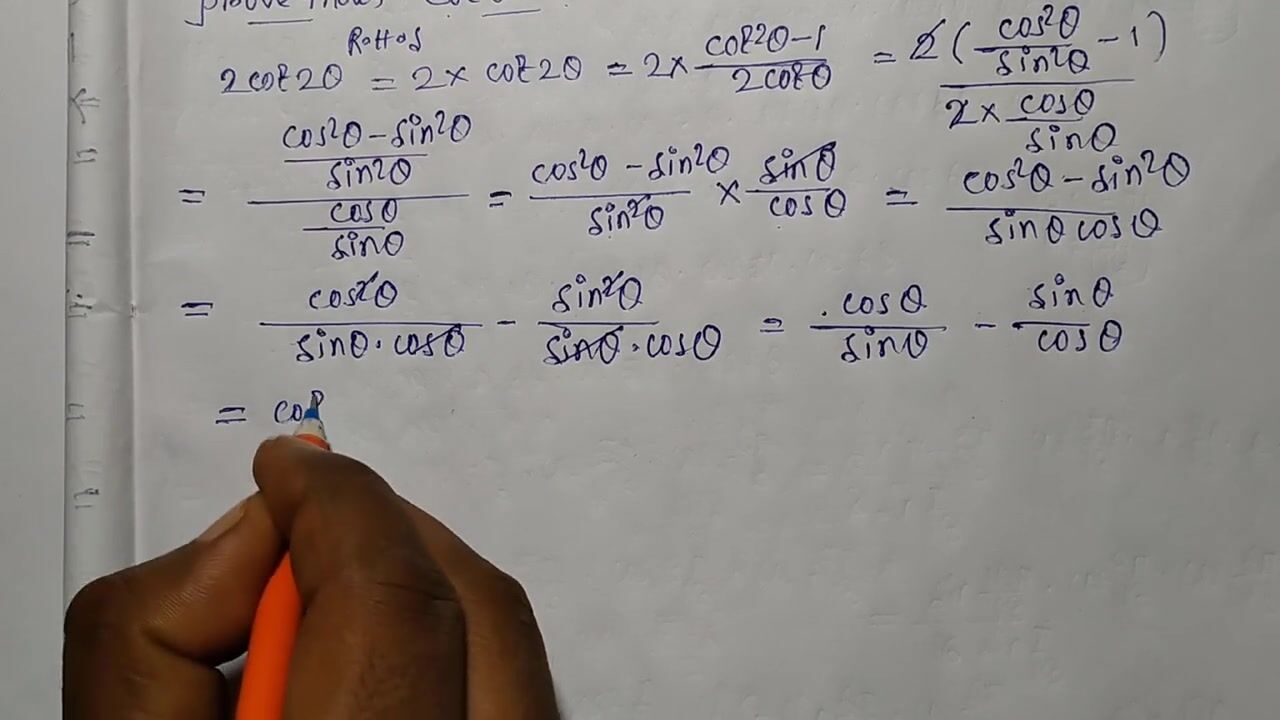 prove that, cot
R.H.S
2cot2θ = 2 × cot2θ = 2 × (cot²θ-1)/(2cotθ) = 2(cos²θ/sin²θ - 1)/(2 × cosθ/sinθ)
= ((cos²θ - sin²θ)/sin²θ)/(cosθ/sinθ) = (cos²θ - sin²θ)/sin²θ × sinθ/cosθ = (cos²θ - sin²θ)/(sinθ cosθ)
= cos²θ/(sinθ·cosθ) - sin²θ/(sinθ·cosθ) = cosθ/sinθ - sinθ/cosθ
= cot